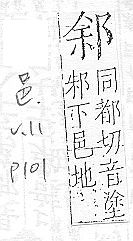 䣄
同都切音塗
邾下邑地
邑.
v.11
p101